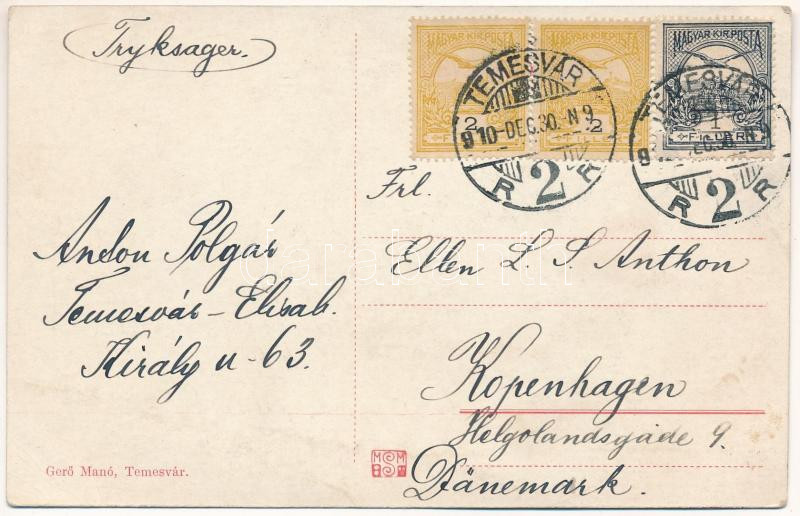 Tryksager.
MAGYAR KIR. POSTA
2
FILLÉR
MAGYAR KIR. POSTA
2
FILLÉR
MAGYAR KIR. POSTA
1
FILLÉR
TEMESVÁR
910-DEC.30.-N9
R 2 R
TEMESVÁR
R 2 R
Frl.
Anton Polgár
Temesvár-Elisab.
Király u-63.
Ellen L. S. Anthon
Kopenhagen
Helgolandsgade 9.
Dänemark.
darabanth
Gerő Manó, Temesvár.